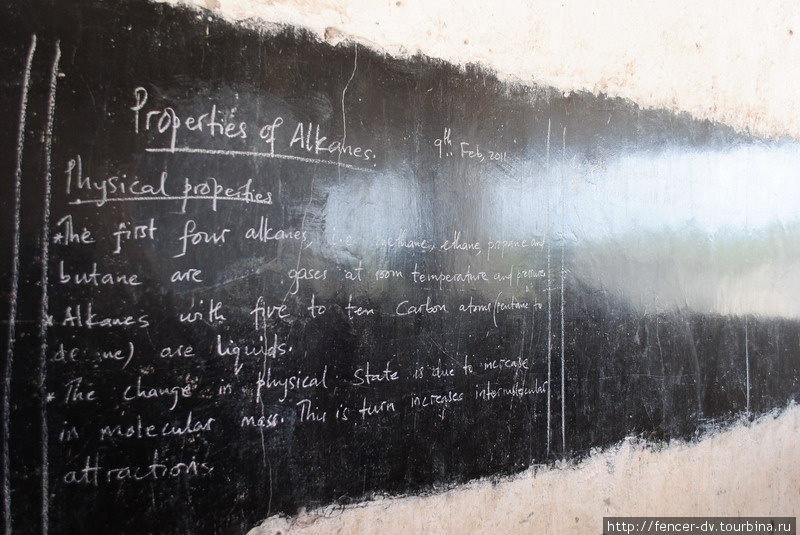 Properties of Alkanes.
9th Feb, 2011
Physical properties
*The first four alkanes, i.e methane, ethane, propane and
butane are gases at room temperature and pressure
* Alkanes with five to ten Carbon atoms (pentane to
ne) are liquids.
* The change in physical State is due to increase
in molecular mass. This is turn increases intermolecular
attractions.
http://fencer-dv.tourbina.ru